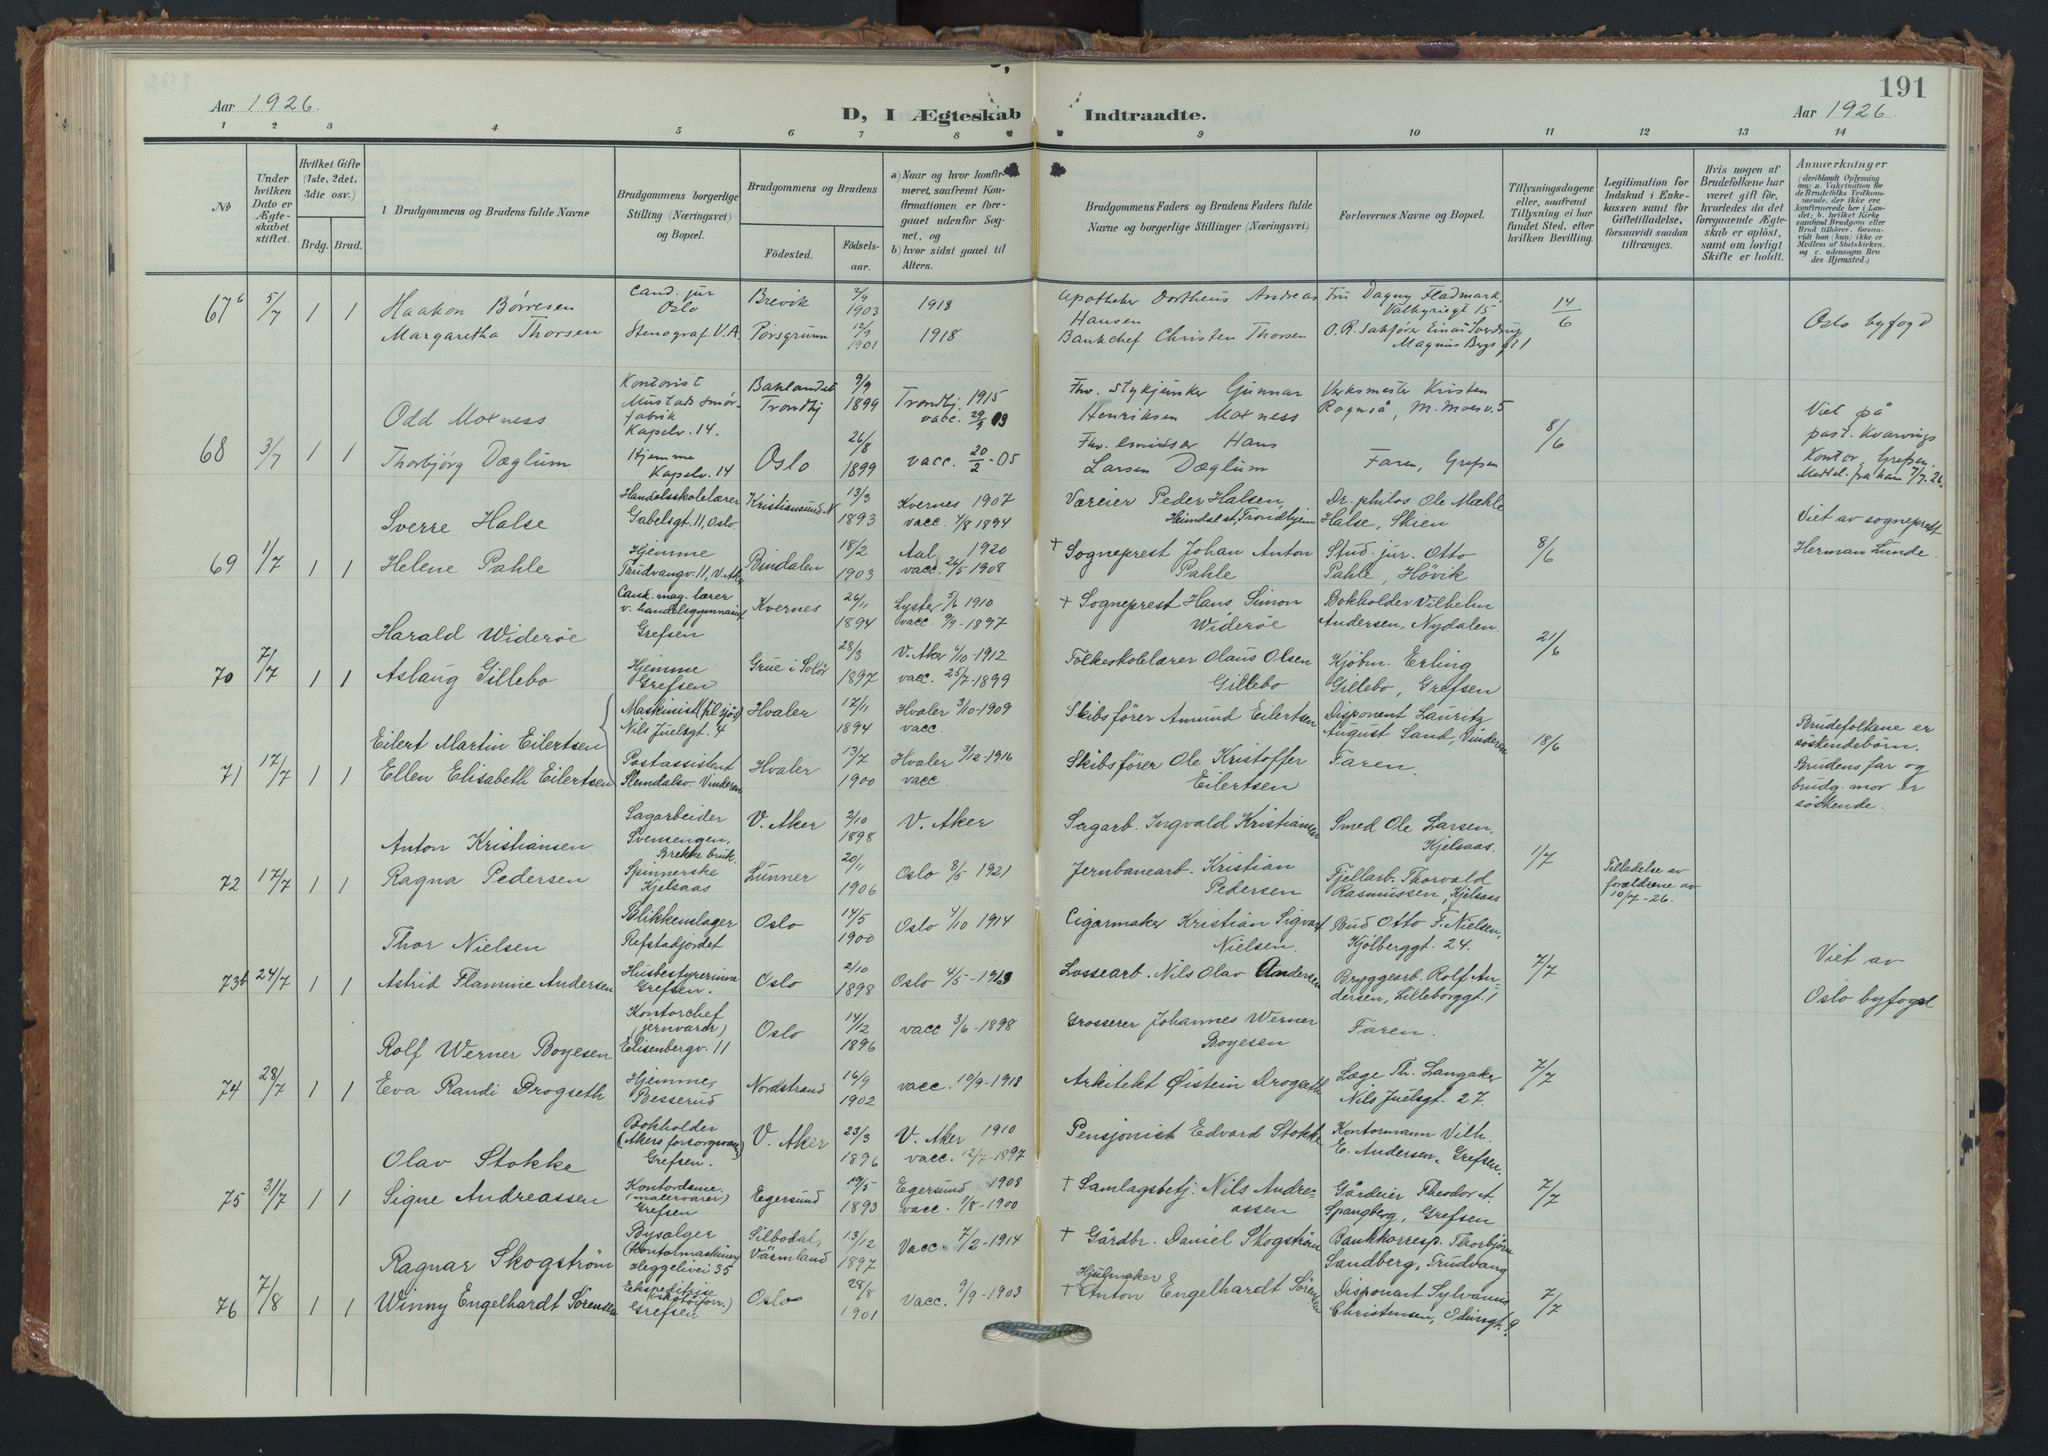 191
Aar 1926.
D, I Ægteskab
Indtraadte.
Aar 1926.
1 2 3 4 5 6 7 8 9 10 11 12 13 14
№
Under hvilken Dato er Ægteskabet stiftet.
Hvilket Gifte (1ste, 2det, 3die osv.)
Brdg. Brud.
1 Brudgommens og Brudens fulde Navne
Brudgommens borgerlige Stilling (Næringsvei) og Bopæl.
Brudgommens og Brudens
Födested.
Födselsaar.
a) Naar og hvor konfirmeret, saafremt Konfirmationen er foregaaet udenfor Sognet, og
b) hvor sidst gaaet til Alters.
Brudgommens Faders og Brudens Faders fulde Navne og borgerlige Stillinger (Næringsvei)
Forlovernes Navne og Bopæl.
Tillysningsdagene eller, saafremt Tillysning ei har fundet Sted, efter hvilken Bevilling.
Legitimation for Indskud i Enkekassen samt för Giftetilladelse, forsaavidt saadan tiltrænges.
Hvis nogen af Brudefolkene har været gift för, hvorledes da det foregaaende Ægteskab er oplöst, samt om lovligt Skifte er holdt.
Anmærkninger
(deriblandt Oplysning om: a. Vakcination for de Brudefolks Vedkommende, der ikke ere konfirmerede her i Landet; b. hvilket Kirkesamfund Brudgom eller Brud tilhörer, forsaavidt han (hun) ikke er Medlem af Statskirken, og c. udensogns Brudes Hjemsted.)
67b 5/7 1 1 Haakon Börresen cand. jur Oslo Brevik 2/9 1903 1918 Apotheker Dortheus Andreas Hansen Fru Dagny Fladmark, Valkyriegt 15 14/6 Oslo byfogd
Margaretha Thorsen Stenograf. V.A. Porsgrunn 12/9 1901 1918 Bankchef Christen Thorsen O.R. Sakförer Einar Sverdrup Magnus Bergs gt 1
68 3/7 1 1 Odd Moxness Kontorist Mustads smörfabrik Kapelv. 14. Baklandet Trondhj 9/9 1899 Trondhj. 1915 Fhv. Stykjunker Gunnar Henriksen Moxness Verksmester Kristen Rognså, M. Moesv. 5 8/6 Viet på past. Kvarvings Kontor, Grefsen. Meddel. fra ham 7/7. 26.
Thorbjörg Dæglum Hjemme Kapelv. 14 Oslo 26/8 1899 vacc. 20/2 - 05 Fhv. smidser Hans Larsen Dæglum Faren, Grefsen
69 1/7 1 1 Sverre Halse Handelsskolelærer Gabelsgt. 11, Oslo. Kristiansund N 13/3 1893 Kvernes 1907 vacc. 4/8 1894 Væreier Peder Halsen, Heimdal st, Trondhjem Dr. philos Ole Mæhle Halse, Skien 8/6 Viet av sogneprest Herman Lunde.
Helene Pahle Hjemme Trudvangv. 11, V. Aker Bindalen 18/2 1903 Aal 1920 vacc. 24/5 - 1908 + Sogneprest Johan Anton Pahle Stud. jur. Otto Pahle, Hövik
70 7/7 1 1 Harald Wideröe Cand. mag. lærer v. handelsgymnasiet Grefsen Kvernes 26/11 1894 Lyster 5/6 1910 vacc. 9/9 - 1897 + Sogneprest Hans Simon Wideröe Bokholder Vilhelm Andersen, Nydalen. 21/6
Aslaug Gillebo Hjemme Grefsen Grue i Solör 28/3 1897 V. Aker 4/10 - 1912 vacc. 25/7 - 1899 Folkeskolelærer Olaus Olsen Gillebo Kjöbm. Erling Gillebo, Grefsen
71 17/7 1 1 Eilert Martin Eilertsen Maskinist (til sjös) Nils Juelsgt. 4 Hvaler 17/11 1894 Hvaler 3/10 - 1909 vacc. Skibsförer Amund Eilertsen Disponent Lauritz August Sand, Vinderen 18/6 Brudefolkene er söskendebörn. Brudens far og brudg. mor er söskende.
Ellen Elisabeth Eilertsen Postassistent Slemdalsv. Vinderen Hvaler 13/7 1900 Hvaler 3/12 - 1916 vacc. Skibsförer Ole Kristoffer Eilertsen Faren.
72 17/7 1 1 Anton Kristiansen Sagarbeider Svensengen, Brekke bruk. V. Aker 2/10 1898 V. Aker Sagarb. Ingvald Kristiansen Smed Ole Larsen, Kjelsaas. 1/7 Tilladelse av forældrene av 10/7 - 26.
Ragna Pedersen Spinnerske Kjelsaas Lunner 20/11 1906 Oslo 8/5 1921 Jernbanearb. Kristian Pedersen Fjellarb. Thorvald Rasmussen, Kjelsaas
73b 24/7 1 1 Thor Nielsen Blikkenslager Refstadjordet Oslo 14/5 1900 Oslo 4/10 1914 Cigarmaker Kristian Sigvart Nielsen. Bud Otto F. Nielsen, Kjölberggt. 24. 7/7 Viet av Oslo byfogd
Astrid Flamine Andersen Husbestyrerinne Grefsen. Oslo 2/10 1898 Oslo 4/5 - 1913 Lossearb. Nils Olav Andersen Bryggearb. Rolf Andersen, Lilleborggt. 1
74 28/7 1 1 Rolf Werner Boyesen Kontorchef (jernvarer) Elisenbergv. 11 Oslo 14/12 1896 vacc 3/6 - 1898 Grosserer Johannes Werner Boyesen Faren. 7/7
Eva Randi Drogseth Hjemme, Besserud Nordstrand 16/9 1902 vacc. 10/9 - 1918 Arkitekt Øistein Drogseth Læge Th. Langaker Nils Juelsgt. 27.
75 31/7 1 1 Olav Stokke Bokholder (Akers forsorgsvæs) Grefsen. V. Aker 23/3 1896 V. Aker 1910 vacc. 12/7 - 1897 Pensjonist Edvard Stokke Kontormann Vilh. E. Andersen, Grefsen. 7/7
Signe Andreassen Kontordame. (malervarer) Grefsen Egersund 19/5 1893 Egersund 1908 vacc. 1/8 - 1900 + Samlagsbetj. Nils Andreassen Gårdeier Theodor A. Spangberg, Grefsen
76 7/8 1 1 Ragnar Skogström Bysælger (Kontormaskiner) Heggelivei 35 Silbodal, Värmland 13/12 1897 Vacc. 7/2 - 1914 + Gårdbr. Daniel Skogström Bankkorresp. Thorbjörn Sandberg, Trudvang 7/7
Winny Engelhardt Sörensen Ekspeditrise (skotöiforr.) Grefsen Oslo 28/8 1901 Vacc. 9/9 - 1903 + Hjulmaker Anton Engelhardt Sörensen Disponent Sylvanus Christensen, Odinsgt. 9.